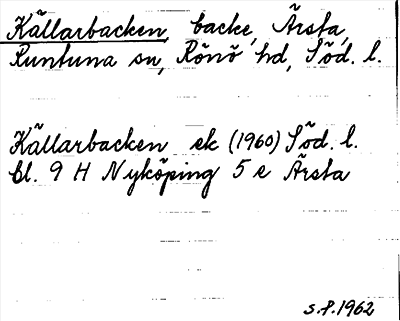 Källarbacken, backe, Ärsta,
Runtuna sn, Rönö hd, Söd. l.
Källarbacken ek (1960) Söd. l.
bl. 9 H Nyköping 5 e Ärsta
S.P. 1962